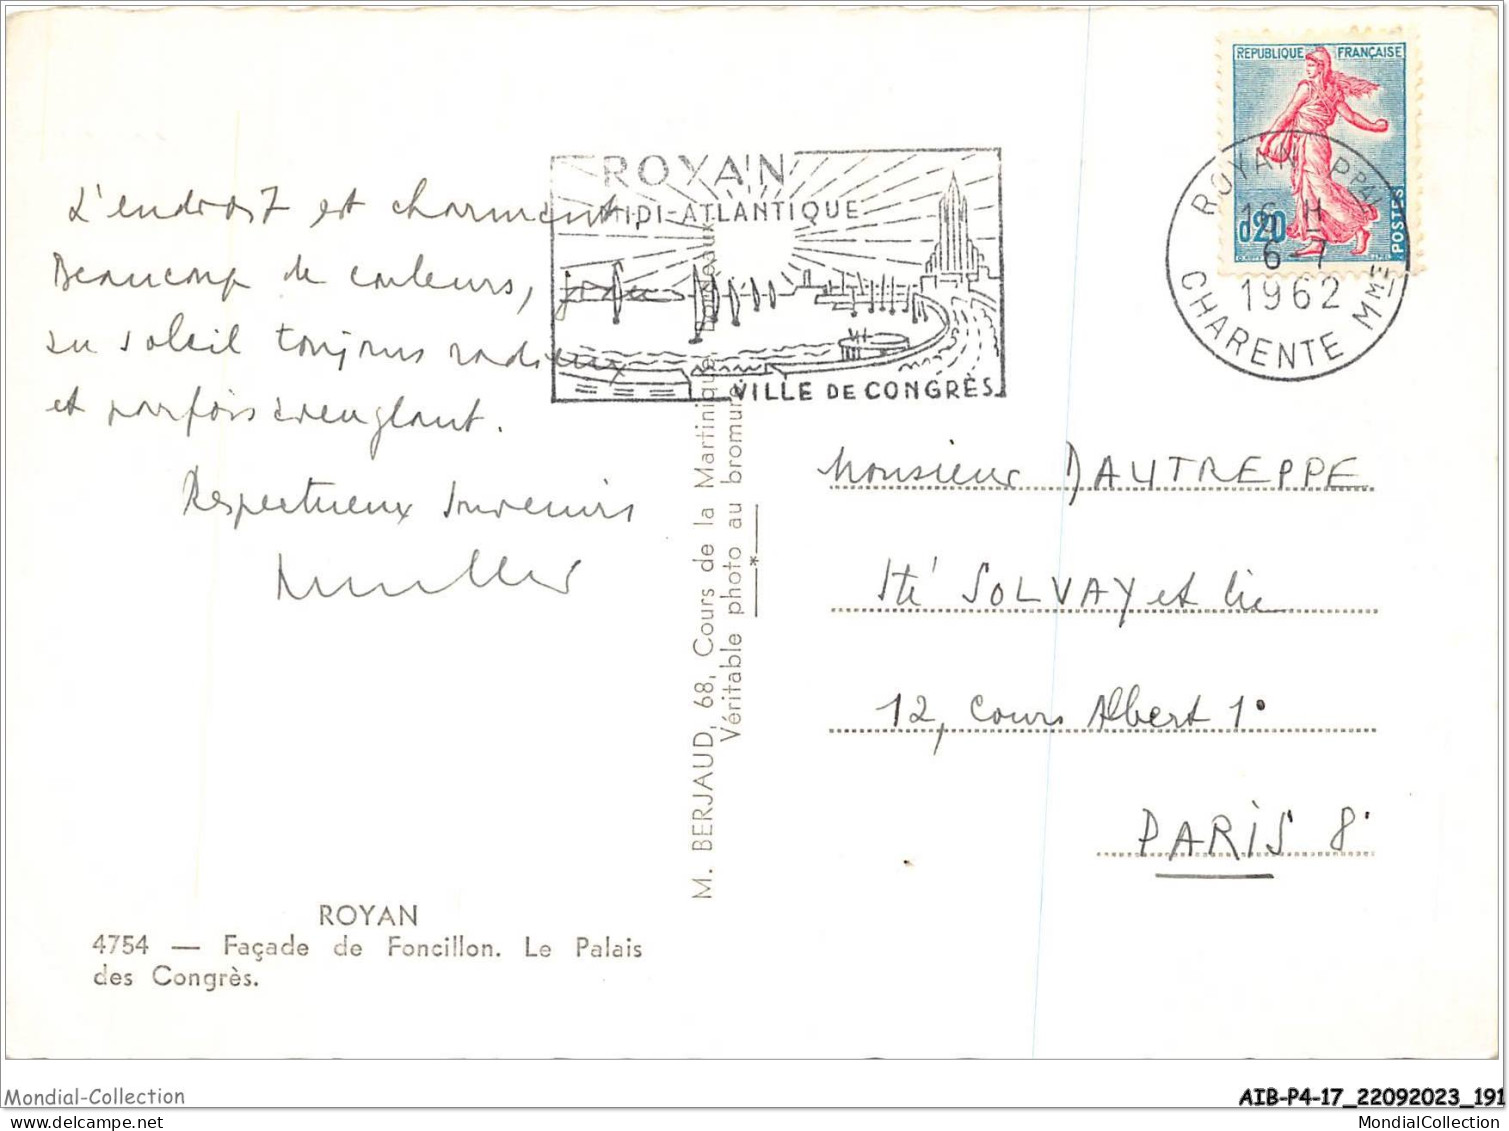 REPUBLIQUE FRANÇAISE
0,20
POSTES
ROYAN PPAL
16 H
6-7
1962
CHARENTE MME
ROYAN
MIDI-ATLANTIQUE
VILLE DE CONGRÈS
L'endroit est charmant
Beaucoup de couleurs,
un soleil toujours radieux
et parfois aveuglant.
Respectueux souvenirs
Monsieur DAUTREPPE
Sté SOLVAY et Cie
12, Cours Albert 1°
PARIS 8°
M. BERJAUD, 68, Cours de la Martinique, Bordeaux
Véritable photo au bromure
ROYAN
4754 — Façade de Foncillon. Le Palais
des Congrès.
Mondial-Collection
AIB-P4-17_22092023_191
MondialCollection.com